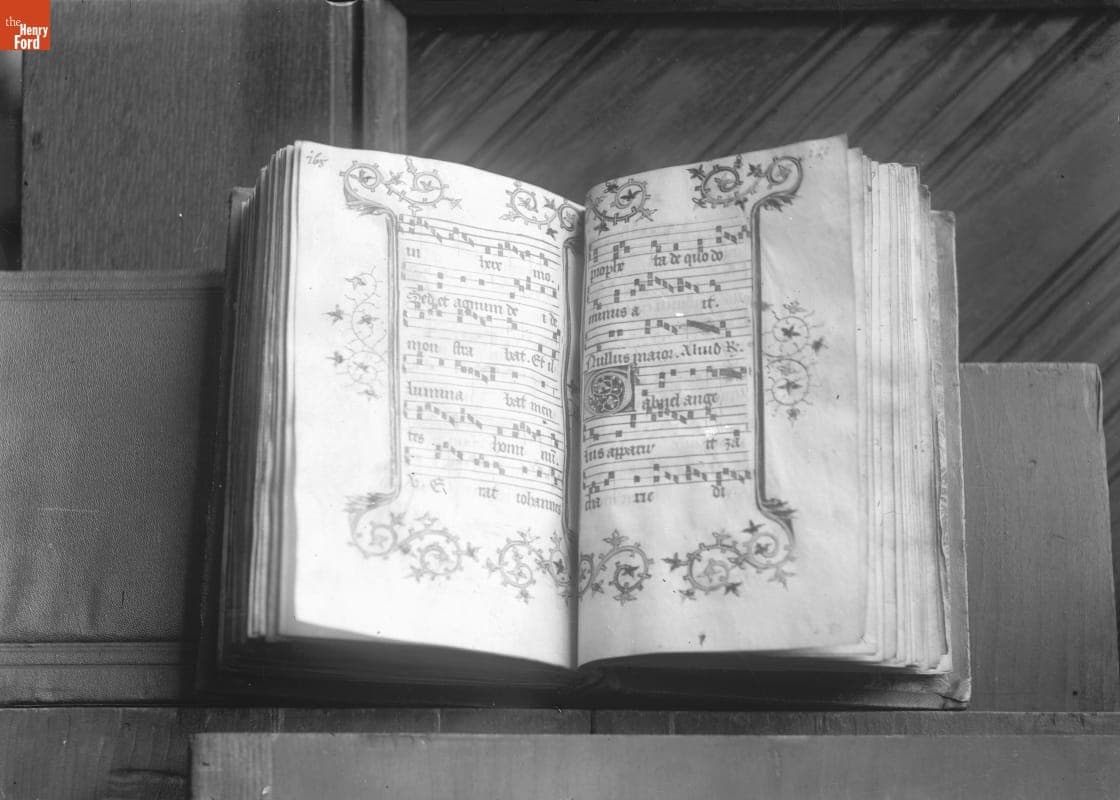 the
Henry
Ford
765
in here mo.
Sed et agnum de i de
mon stra bat. Et il
lumina bat men
tes homi nū.
V. E rat iohannes
prophe ta de quo do
minus a it.
Nullus maior. Aliud R.
G abriel ange
lus apparu it za
cha rie di